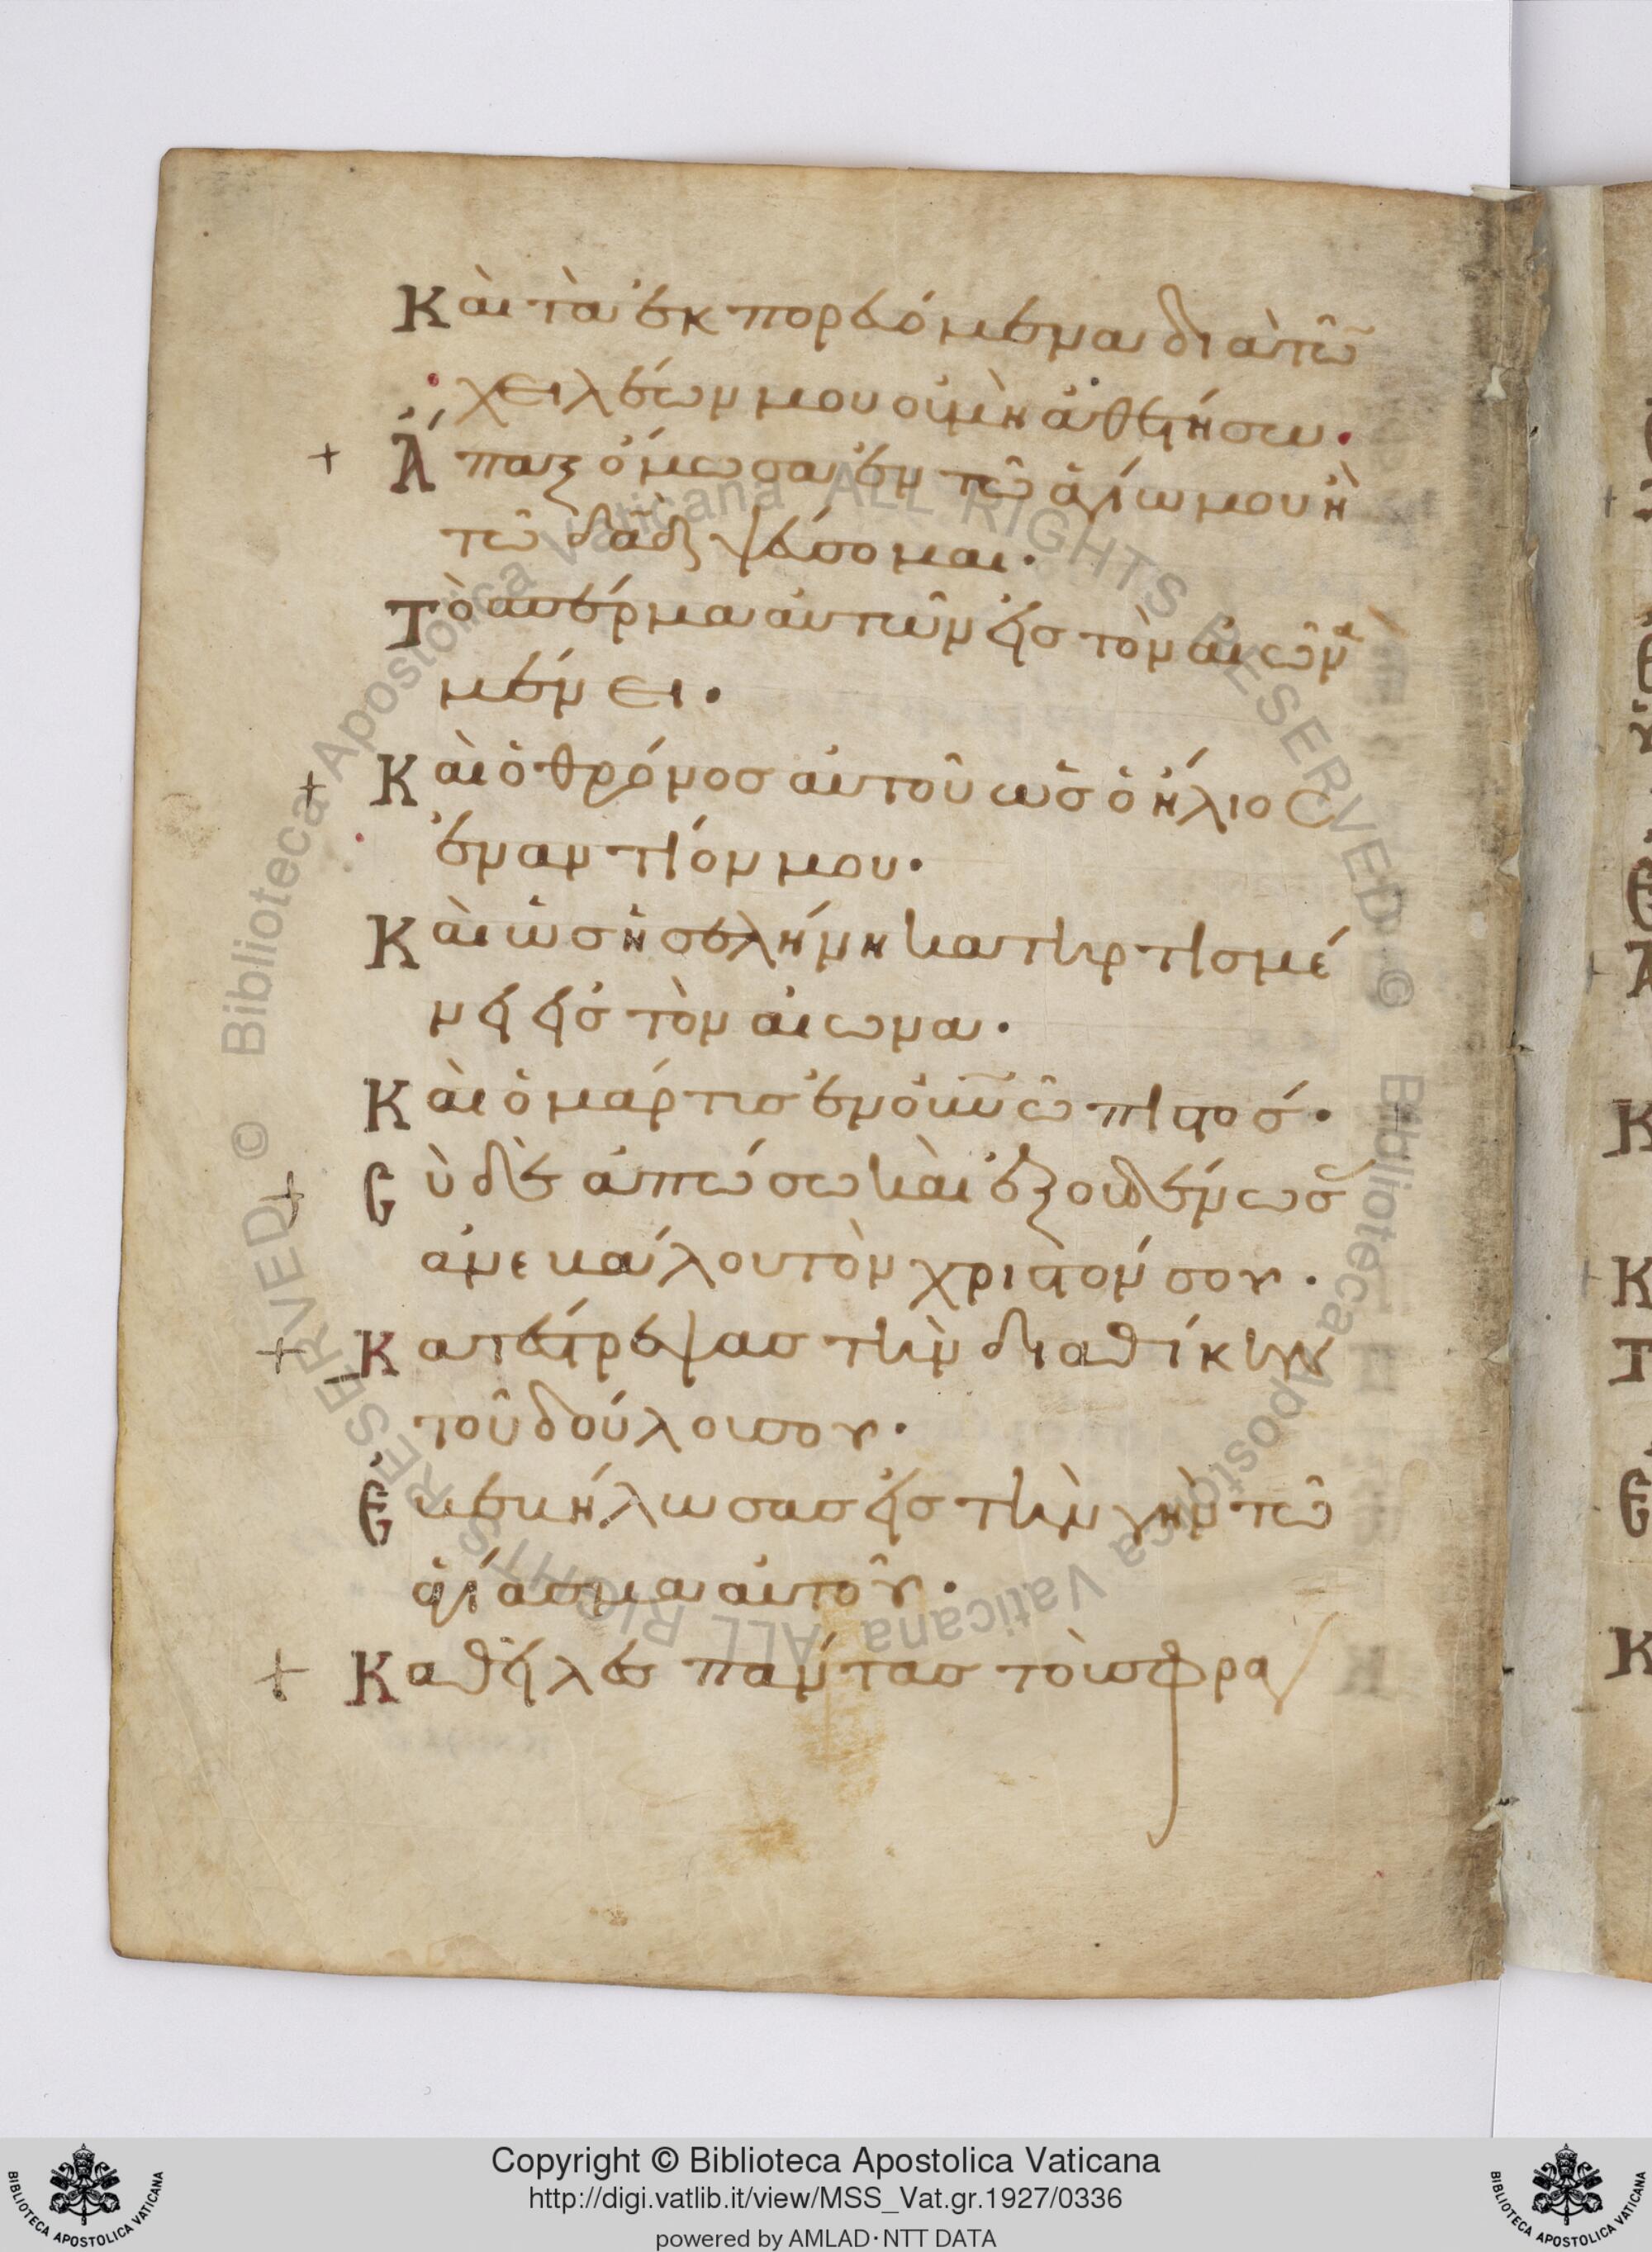 Καὶ τὰ ἐκπορευόμενα διὰ τῶ̃
χειλέων μου οὐ μὴ ἀθετήσω.
+ Ἅπαξ ὄμωσα ἐν τῶ ἁγίω μου ἢ
τῶ δα̅δ ψεύσομαι.
Τὸ σπέρμα αυτῶν εἰς τὸν αἰῶνα
μένει.
+ Καὶ ὁ θρόνος αὐτοῦ ὡς ὁ ἥλιος
ἐναντίον μου.
Καὶ ὡς ἡ σελήνη κατηρτισμέ
νει εἰς τὸν αἰωνα.
Καὶ ὁ μάρτις ἐν οὐ̅νῶ πιστός.
+ Cὺ δὲ ἀπώσω καὶ ἐξουδένωσ
ἀνεκάλου τὸν χριστόν σου.
+ Κατέστρεψας τὴν διαθίκην
τοῦ δούλου σου.
Ἐβεβήλωσας εἰς τὴν γῆν τῶ
ἁγίασμα αὐτοῦ.
+ Καθεῖλες πάντας τοὺς φρα
Copyright © Biblioteca Apostolica Vaticana
http://digi.vatlib.it/view/MSS_Vat.gr.1927/0336
powered by AMLAD·NTT DATA
BIBLIOTECA APOSTOLICA VATICANA
BIBLIOTECA APOSTOLICA VATICANA
© Biblioteca Apostolica Vaticana ALL RIGHTS RESERVED
© Biblioteca Apostolica Vaticana ALL RIGHTS RESERVED